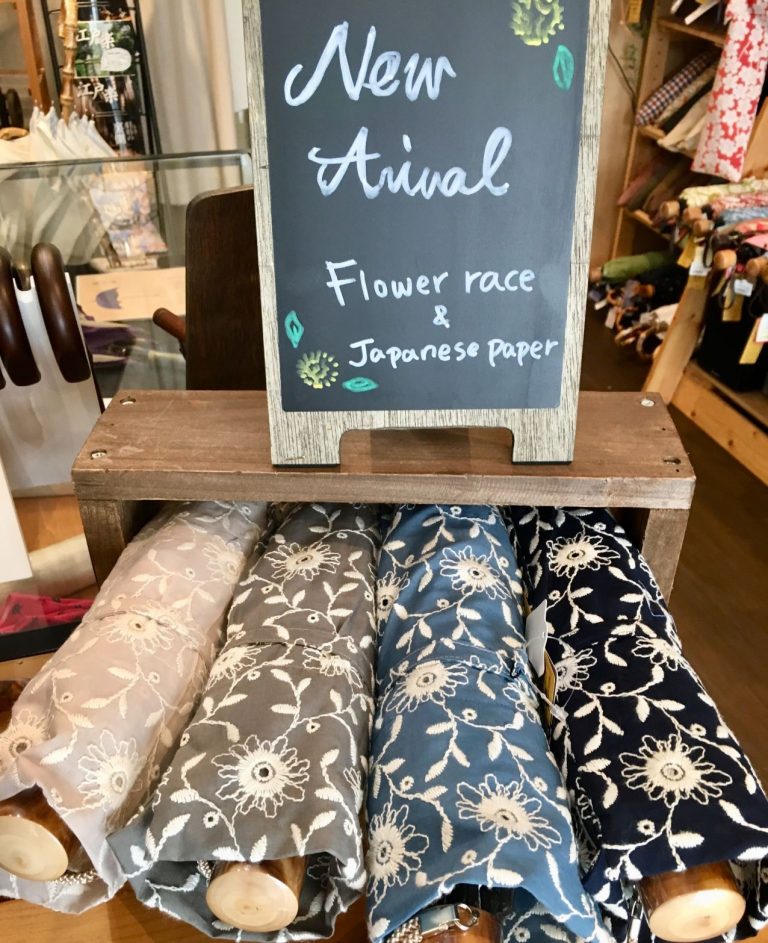 New
Arival
Flower race
&
Japanese paper
江戸
江戸